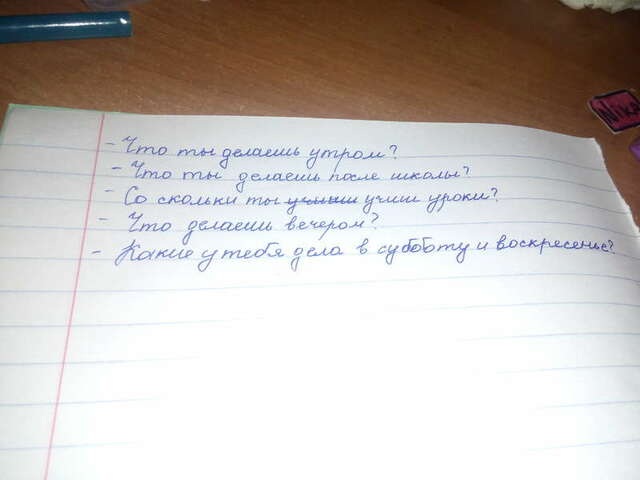 - Что ты делаешь утром?
- Что ты делаешь после школы?
- Со скольки ты учиш уроки?
- Что делаешь вечером?
- Какие у тебя дела в субботу и воскресенье?
Nika